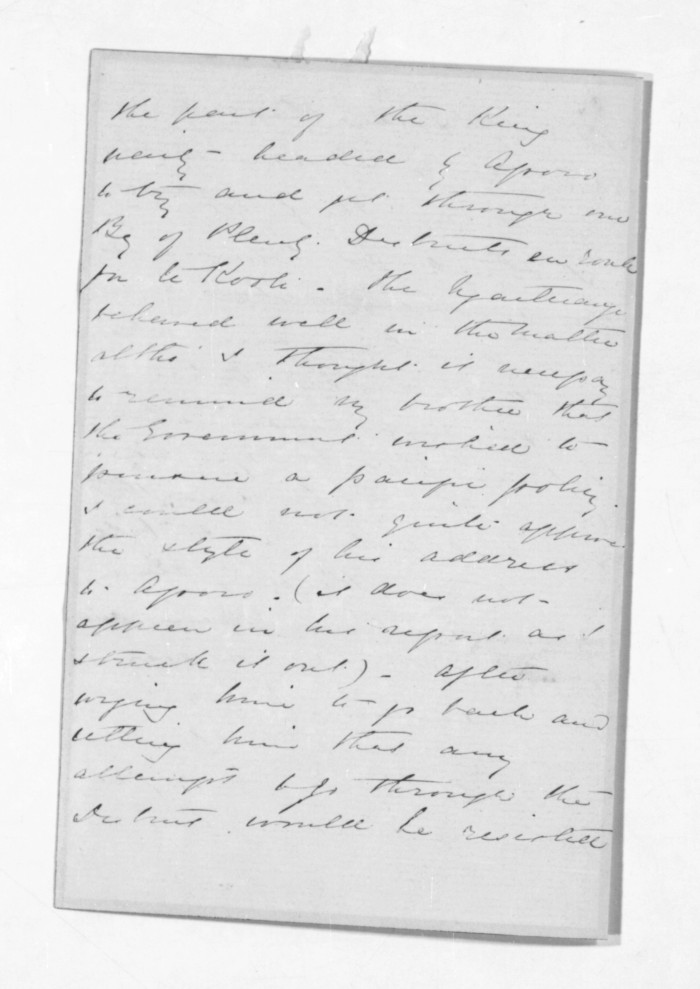 the part of the King
party - headed by Aporo
to try and get through our
Bay of Plenty Districts en route
for Te Kooti - the Ngaiterangi
behaved well in the matter
altho' I thought it necessary
to remind my brother that
the Government wished to
pursue a pacific policy
I could not quite approve
the style of his address
to Aporo. (it does not -
appear in his report as I
struck it out) - after
urging him to go back and
telling him that any
attempt to go through the
District would be resisted